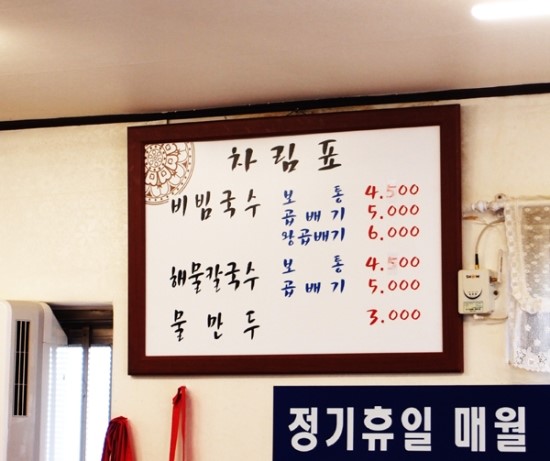 차림표
비빔국수 보통 4.500
곱배기 5.000
왕곱배기 6.000
해물칼국수 보통 4.500
곱배기 5.000
물만두 3.000
정기휴일 매월